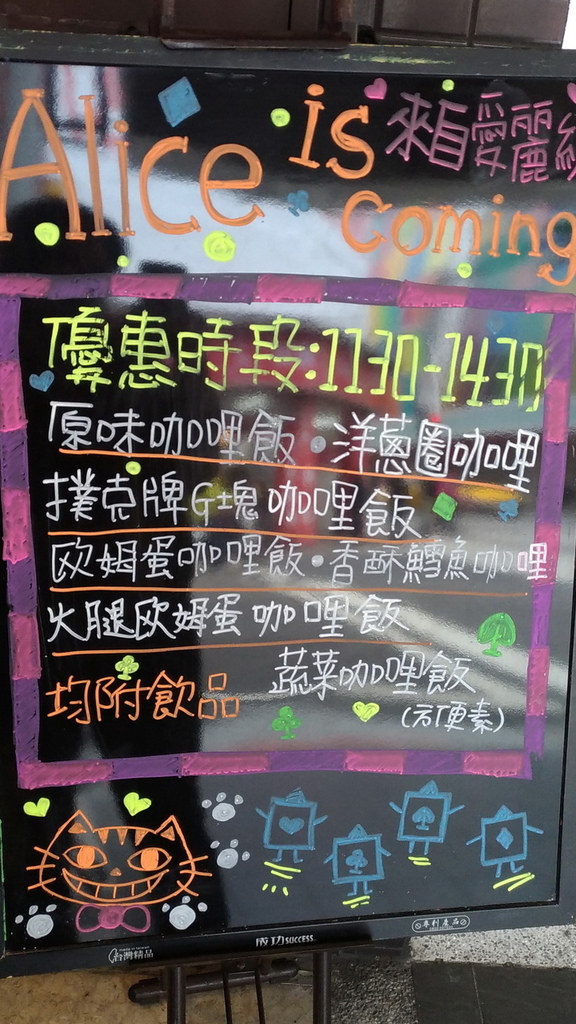 Alice is 來自愛麗絲
coming
優惠時段:1130-1430
原味咖哩飯·洋蔥圈咖哩
撲克牌G塊咖哩飯
欧姆蛋咖哩飯·香酥鱈魚咖哩
火腿欧姆蛋咖哩飯
均附飲品 蔬菜咖哩飯
(方便素)
台灣精品 成功SUCCESS. 專利產品